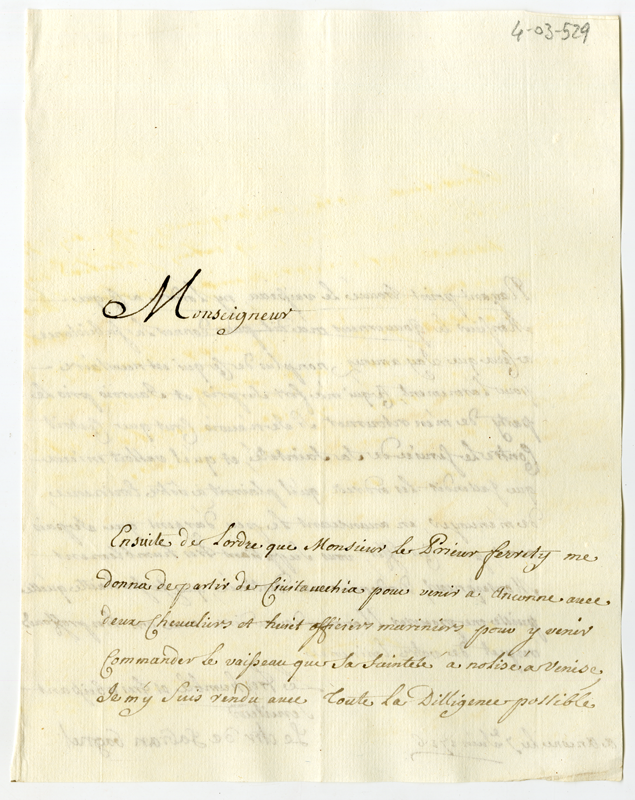 4-03-529
Monseigneur
Ensuite de Lordre que Monsieur le Prieur ferrety me
donna de partir de Civitavechia pour venir a Anconne avec
deux Chevaliers et huit officiers mariniers pour y venir
Commander le vaisseau que Sa Sainteté a nolisé a Venise,
Je m'y suis rendu avec Toute La Dilligence possible